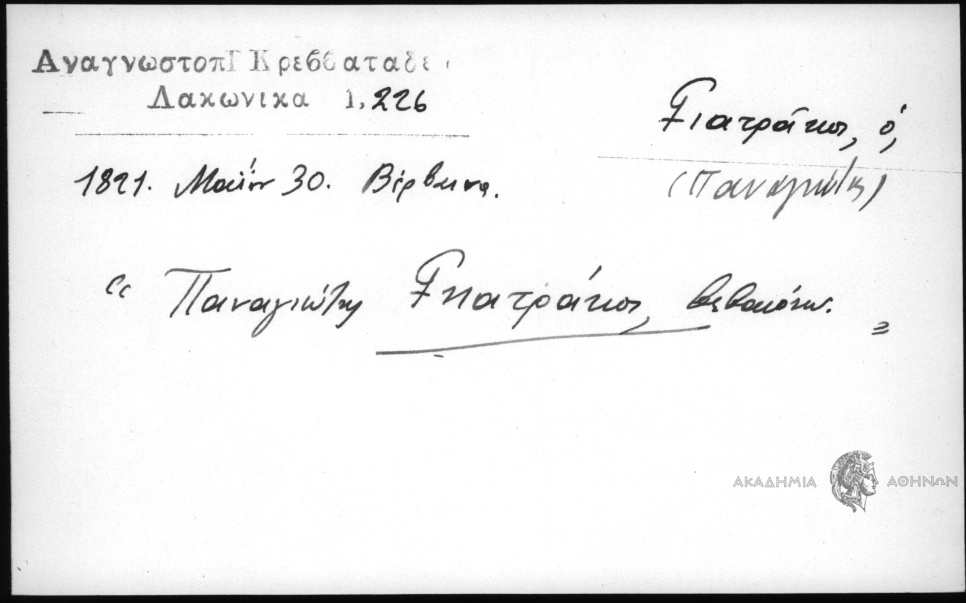 Αναγνωστοπ Γ Κρεββαταδε
Λακωνικα 1, 226
Γιατράκος, ὁ,
(Παναγιώτης)
1821. Μαΐου 30. Βέρβενα.
“ Παναγιώτης Γηατράκος, βεβαιόνω. „
ΑΚΑΔΗΜΙΑ ΑΘΗΝΩΝ